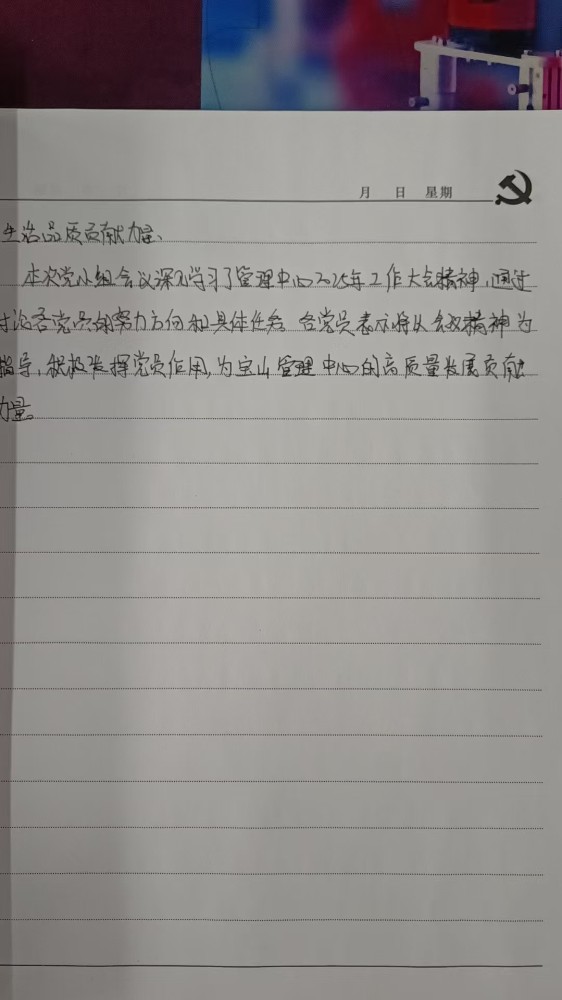 月 日 星期
生活品质贡献力量、
本次党小组会议深入学习了管理中心2025年工作大会精神,通过
讨论各党员的努力方向和具体任务 各党员表示将以会议精神为
指导,积极发挥党员作用,为宝山管理中心的高质量发展贡献
力量。